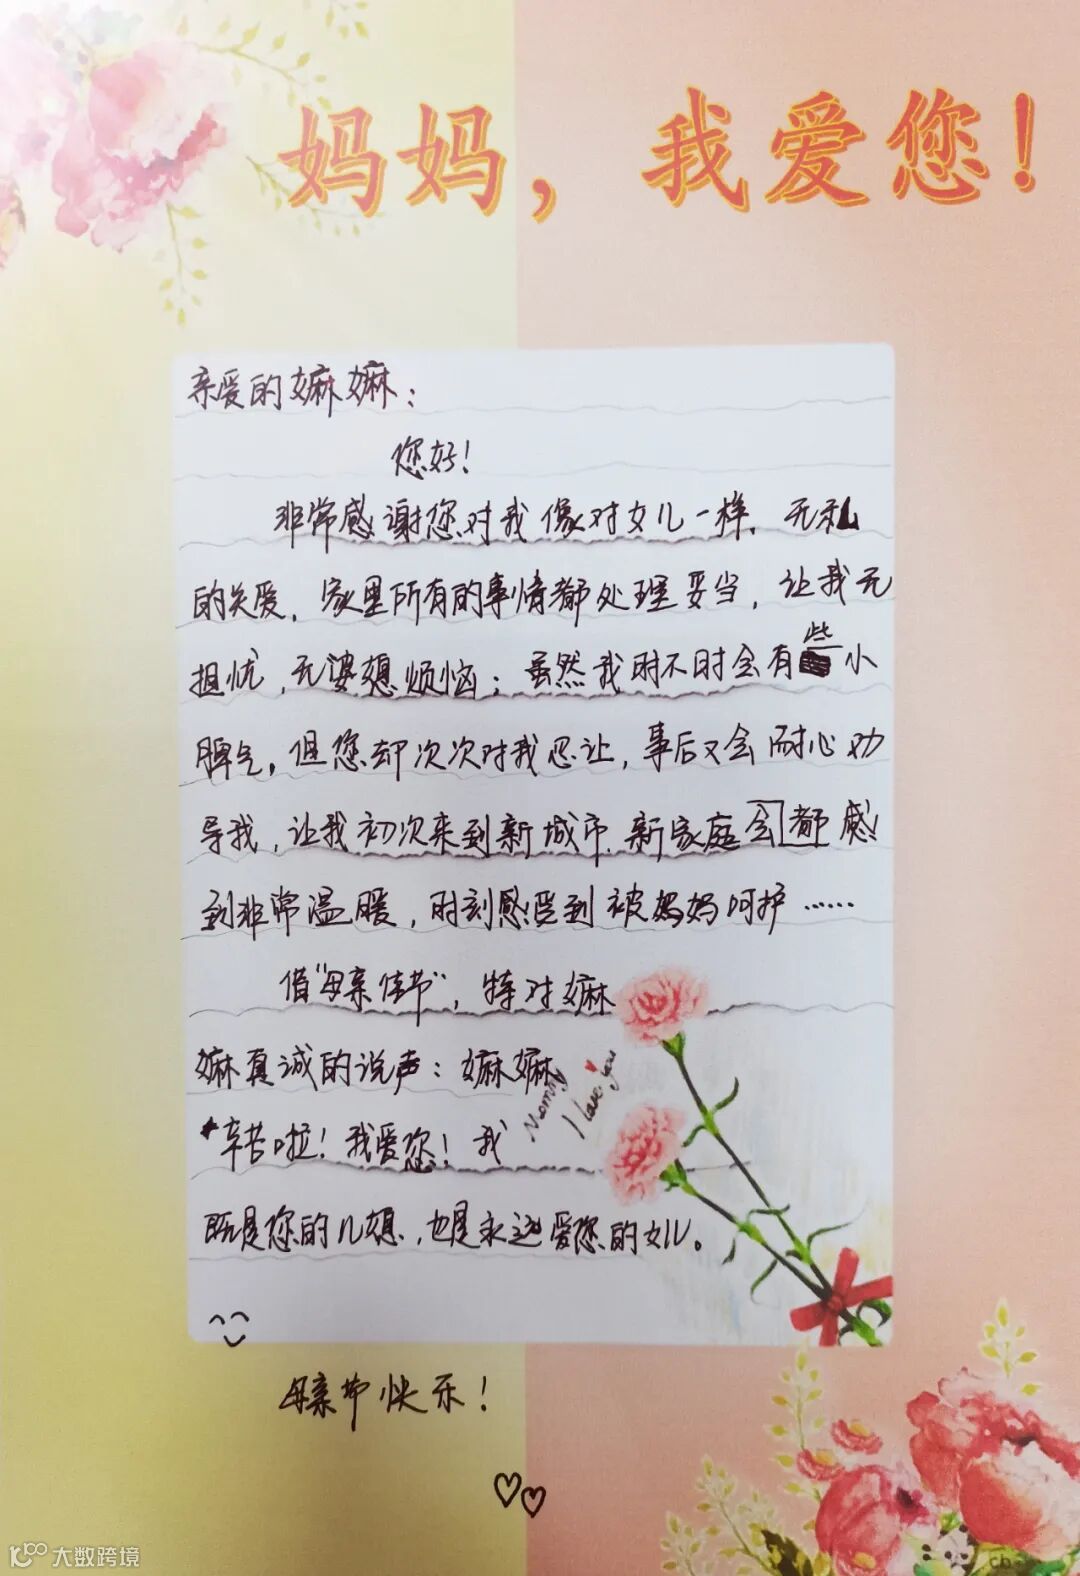 妈妈，我爱您！
亲爱的嫲嫲：
您好！
非常感谢您对我像对女儿一样、无私
的关爱，家里所有的事情都处理妥当，让我无
担忧，无婆媳烦恼；虽然我时不时会有些小
脾气，但您却次次对我忍让，事后又会耐心劝
导我，让我初次来到新城市、新家庭会都感
到非常温暖，时刻感受到被妈妈呵护……
借“母亲佳节”，特对嫲
嫲真诚的说声：嫲嫲
辛苦啦！我爱您！我
既是您的儿媳，也是永远爱您的女儿。
Mommy
I love you
母亲节快乐！
大数跨境